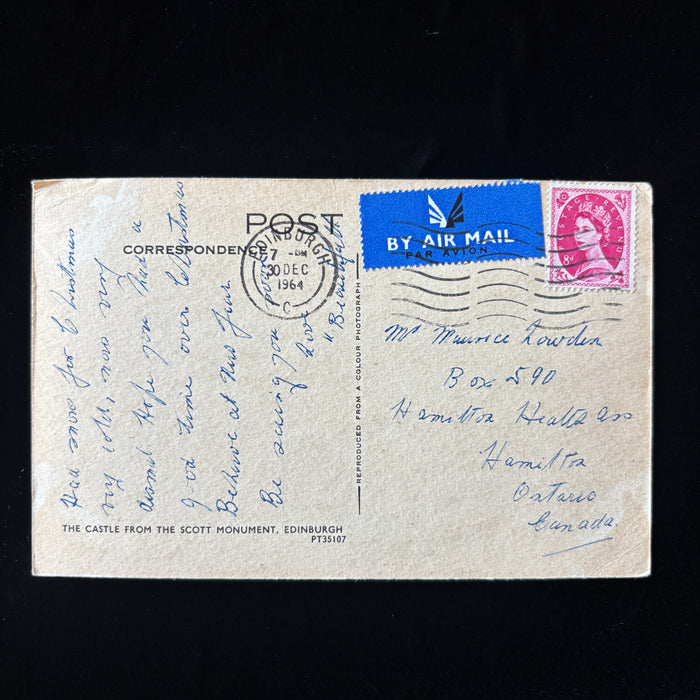 POST
CORRESPONDENCE
BY AIR MAIL
PAR AVION
POSTAGE REVENUE
8d
EDINBURGH
7 - PM
30 DEC
1964
C
Had snow for Christmas
very cold, now very
damp Hope you had a
good time over Christmas
Behave at New Year
Be seeing you soon
love
REPRODUCED FROM A COLOUR PHOTOGRAPH
Mr Maurice Lowden
Box 590
Hamilton Health Ass
Hamilton
Ontario
Canada.
THE CASTLE FROM THE SCOTT MONUMENT, EDINBURGH
PT35107